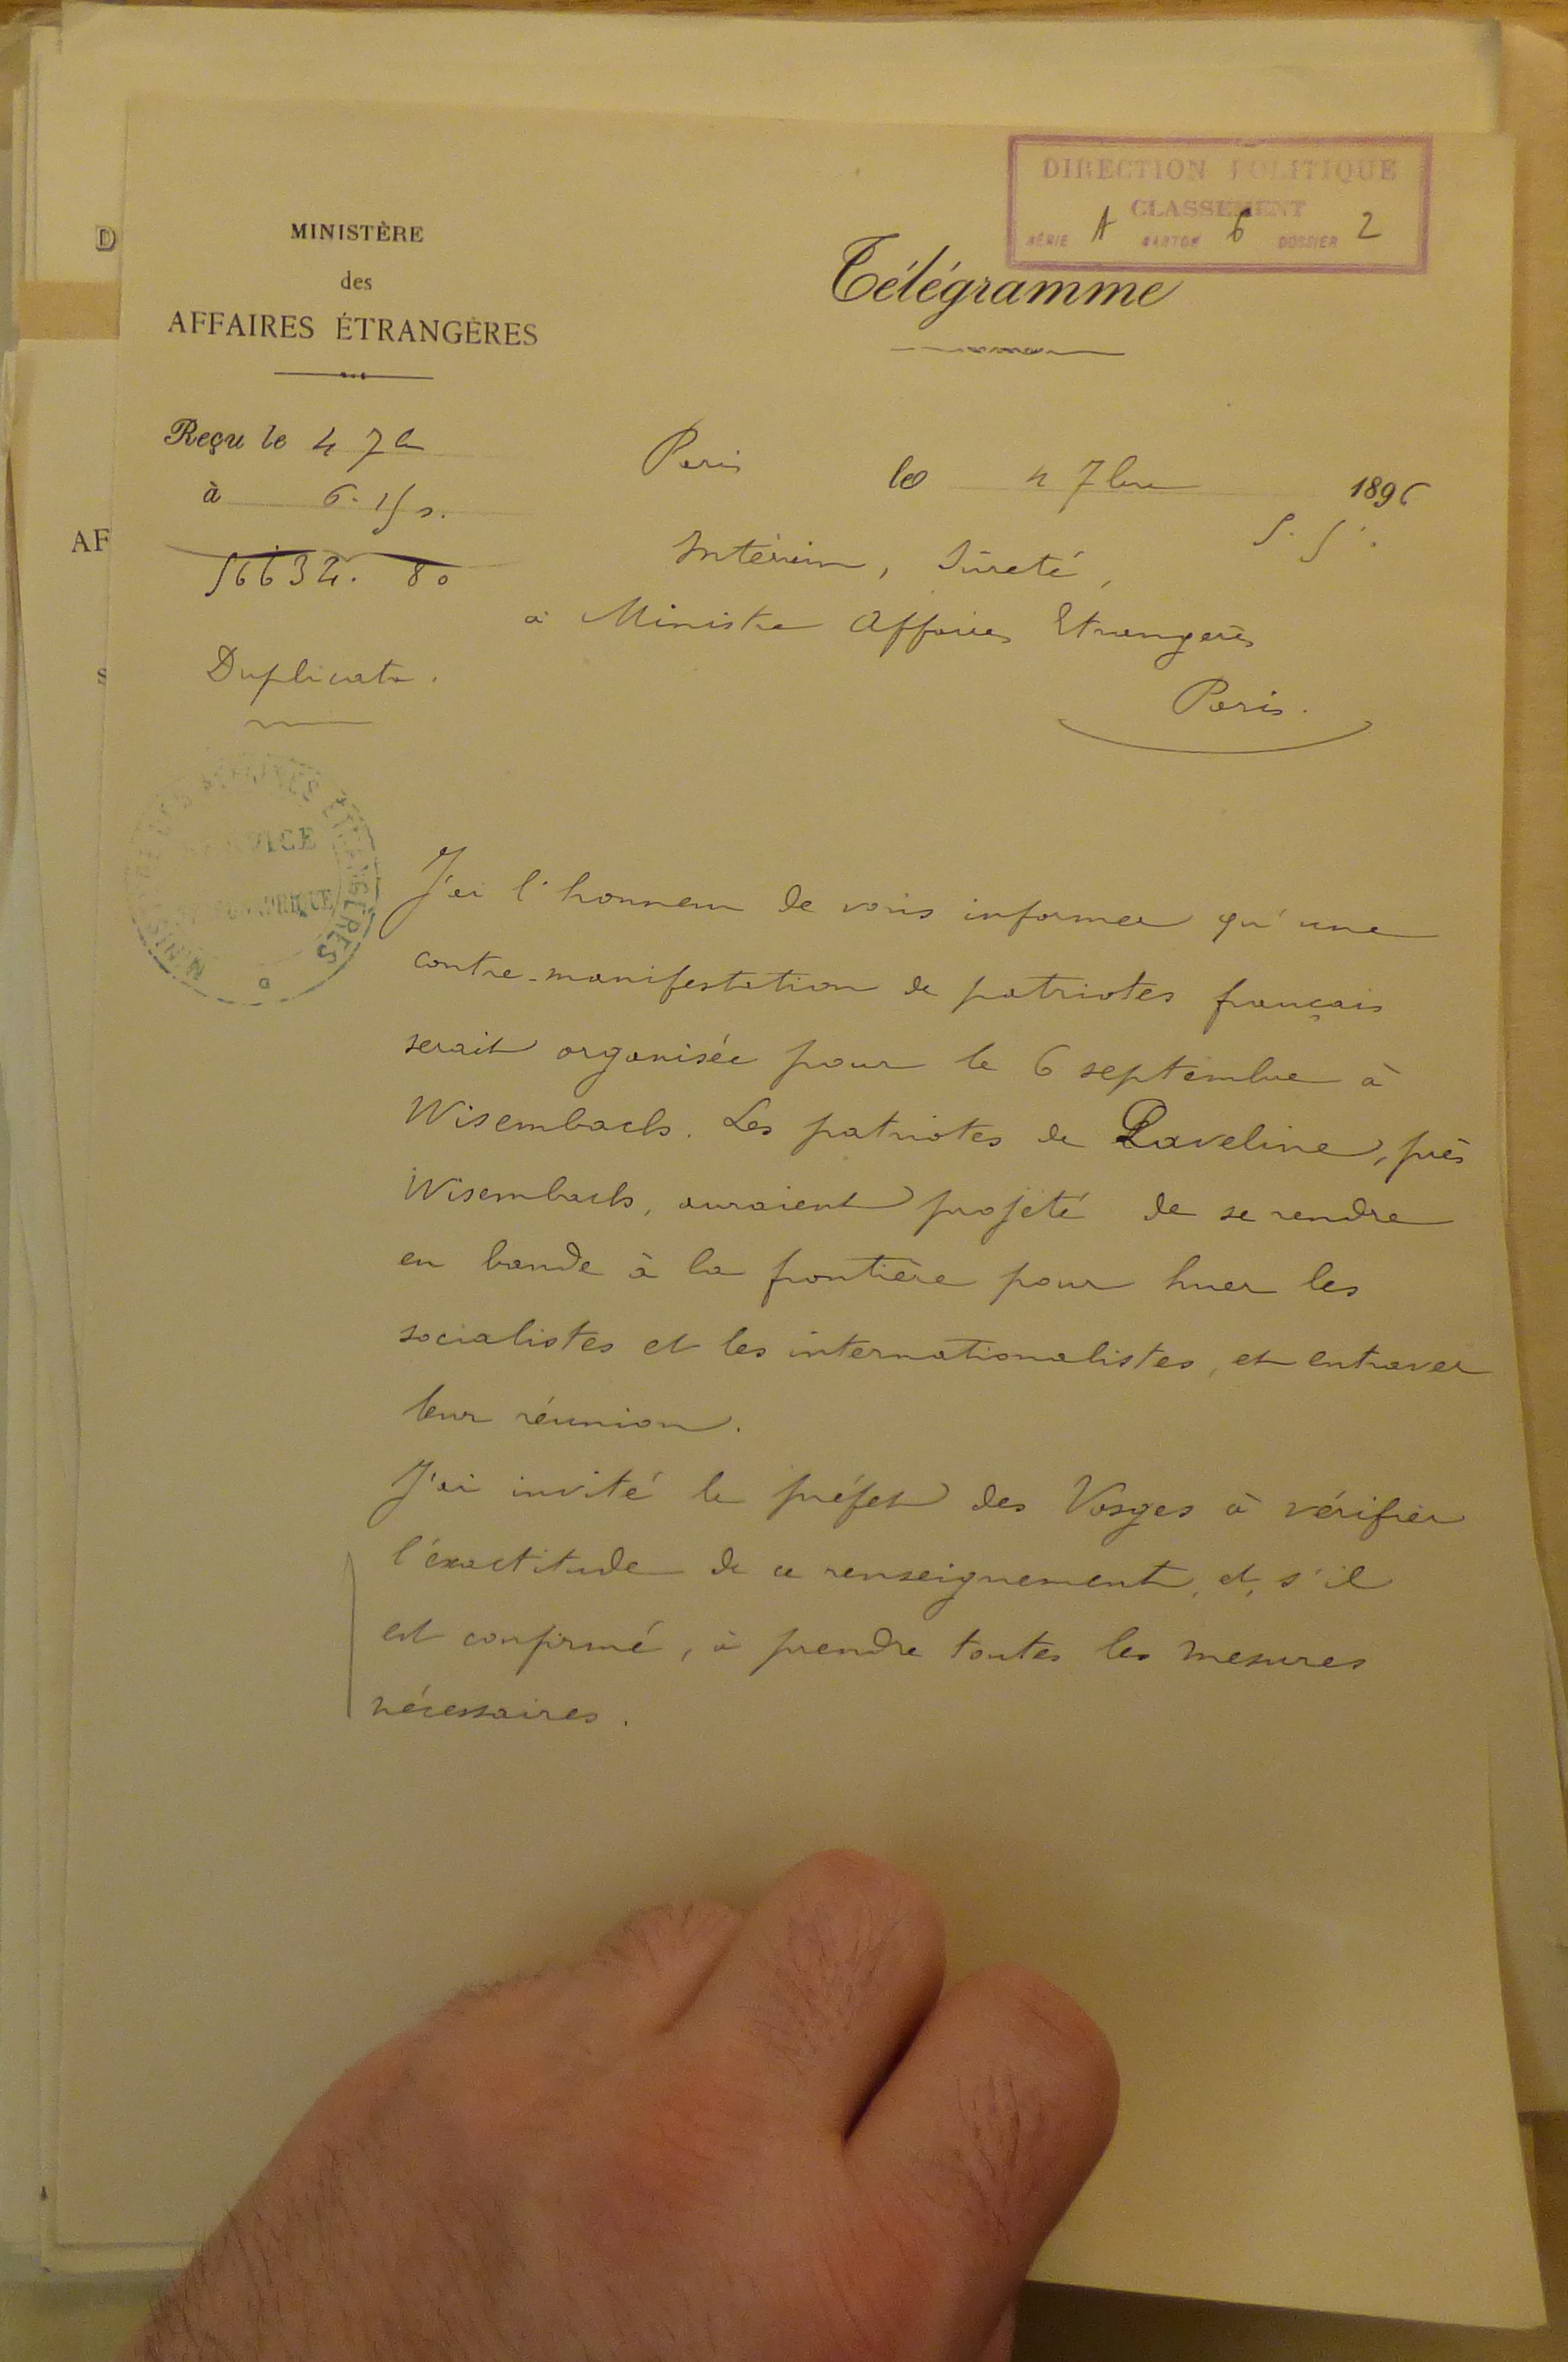 DIRECTION POLITIQUE
CLASSEMENT
SÉRIE A CARTON 6 DOSSIER 2
D
MINISTÈRE
des
AFFAIRES ÉTRANGÈRES
Télégramme
Reçu le 4 7b
à 6.15 s.
56632. 80
Duplicata.
Paris le 4 7bre 1896
5. 5.
Intérieur, Sûreté,
à Ministre Affaires Etrangères
Paris.
AF
S
MINISTÈRE DES AFFAIRES ÉTRANGÈRES
SERVICE
TÉLÉGRAPHIQUE
J'ai l'honneur de vous informer qu'une
contre-manifestation de patriotes français
serait organisée pour le 6 septembre à
Wisembach. Les patriotes de Laveline, près
Wisembach, auraient projeté de se rendre
en bande à la frontière pour huer les
socialistes et les internationalistes, et entraver
leur réunion.
J'ai invité le préfet des Vosges à vérifier
l'éxactitude de ce renseignement, et, s'il
est confirmé, à prendre toutes les mesures
nécessaires.